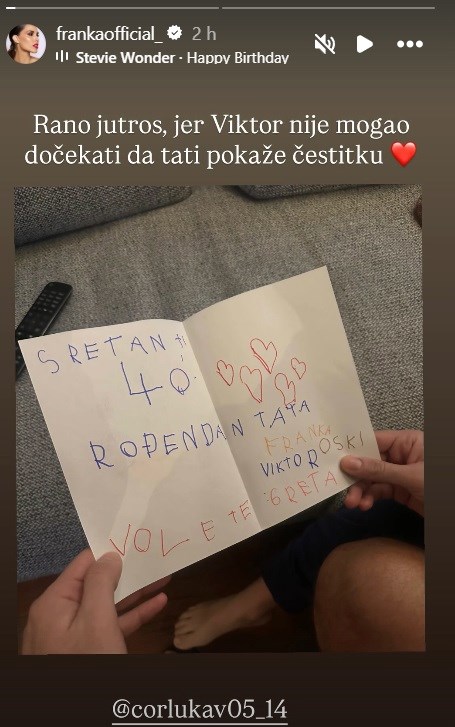 frankaofficial_ 2 h
Stevie Wonder · Happy Birthday
Rano jutros, jer Viktor nije mogao
dočekati da tati pokaže čestitku ❤️
SRETAN TI
40.
ROĐENDAN TATA
VOLE TE:
FRANKA
VIKTOR OSKI
GRETA
@corlukav05_14